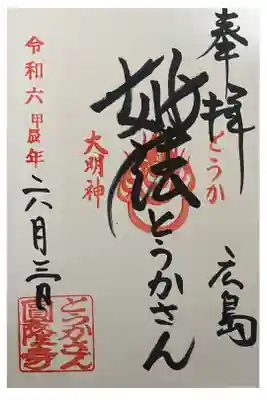 奉拝
広島
とうか
妙法とうかさん
大明神
令和六甲辰年
六月三日
とうかさん
圓隆寺